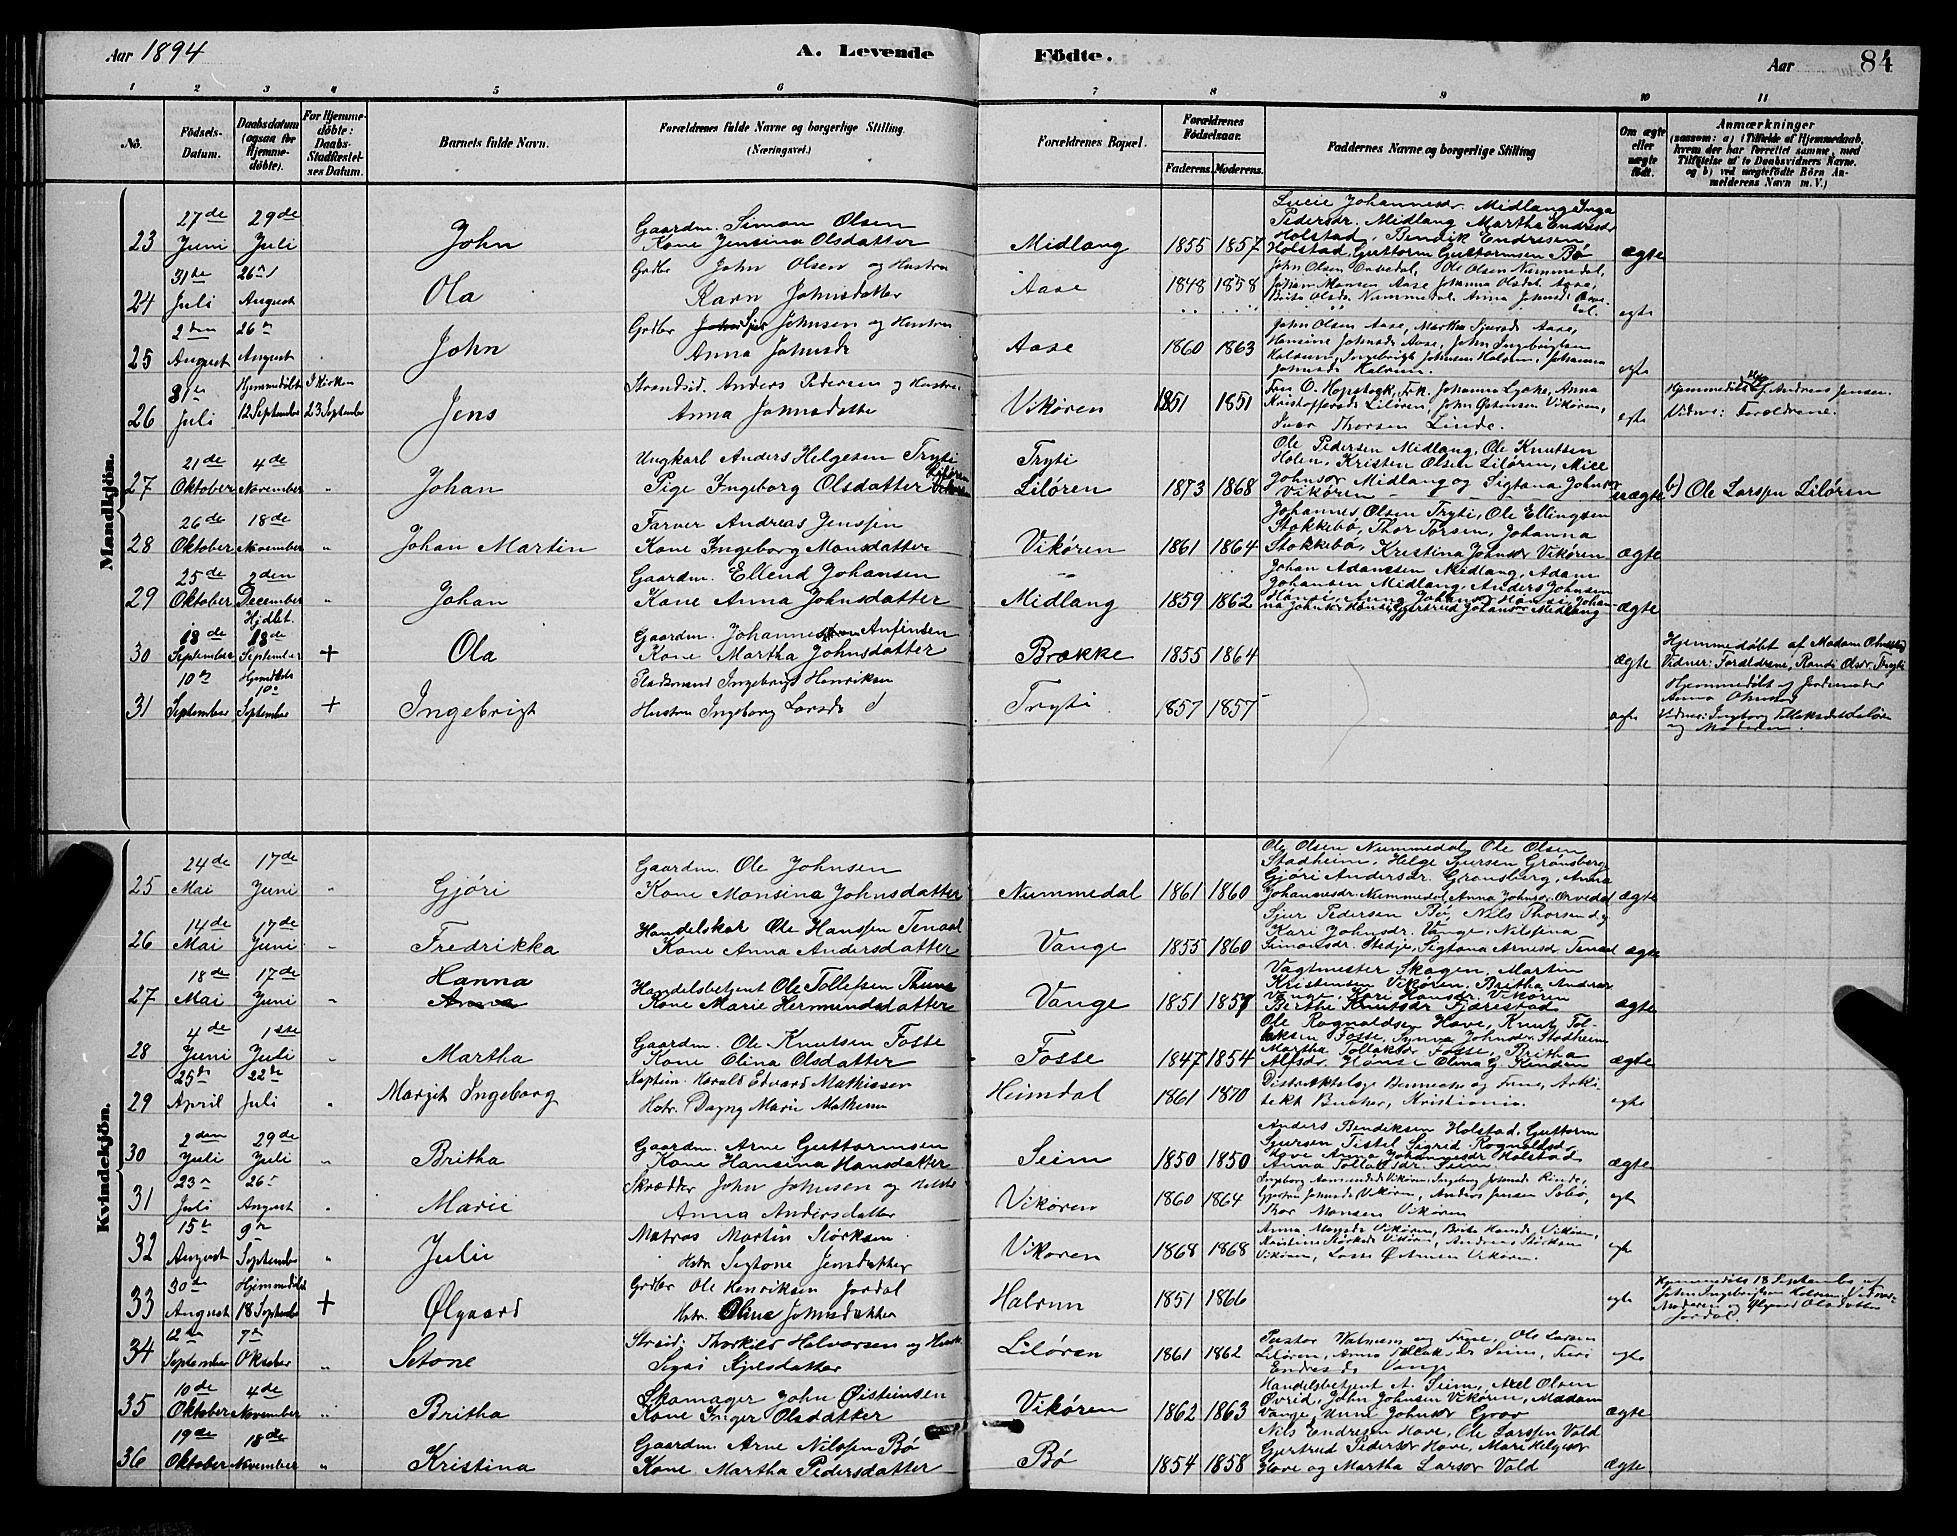 Aar 1894
A. Levende Födte.
Aar 84
1 2 3 4 5 6 7 8 9 10 11
No.
Födsels-Datum.
Daabsdatum (ogsaa for Hjemme-döbte).
For Hjemme-döbte: Daabs-Stadfæstel-ses Datum.
Barnets fulde Navn.
Forældrenes fulde Navne og borgerlige Stilling. (Næringsvei.)
Forældrenes Bopæl.
Forældrenes Födselsaar. Faderens. Moderens.
Faddernes Navne og borgerlige Stilling
Om ægte eller uægte födt.
Anmærkninger
(saasom: a) i Tilfælde af Hjemmedaab,
hvem der har forrettet samme, med
Tilföielse af to Daabsvidners Navne.
og b) ved uægtefödte Börn An-
melderens Navn m. V.)
Mandkjön.
23 27de Juni 29de Juli John
Gaardm. Simon Olsen
Kone Jensina Olsdatter
Midlang 1855 1857
Lucie Johannesdr. Midlang Inga
Pedersdr. Midlang Martha Endresdr
Holstad, Bendik Endresen
Holstad, Guttorm Guttormsen Bö
ægte
24 31te Juli 26 August Ola
Grdbr John Olsen og Hustru
Karn Johnsdatter
Aase 1848 1858
John Olsen Orvedal, Ole Olsen Nummedal,
Johan Monsen Aase Johanna Olsdr Aase,
Brita Olsdr Nummedal Anna Johnsdr
egte
25 2den August 26 August John
Grdbr Sjur Johnsen og Hustru
Anna Johnsdr
Aase 1860 1863
John Olsen Aase, Martha Sjursdr Aase,
Hansine Johnsdr Aase, John Ingebrigtsen
Halrum, Ingebrigt Johnsen Halrum, Johanna
Johnsdr Halrum.
egte
26 31te Juli Hjemmedöbt 12 September I Kirken 23 September Jens
Strandsid. Anders Pedersen og Hustru
Anna Johnsdatter
Vikören 1851 1851
Fru O. Hopstock, Frk. Johanna Lycke, Anna
Kristoffersdr Lilören, John Östensen Vikören,
Thorsen Linde.
egte
Hjemmedöbt af Andreas Jensen.
Vidner: Forældrene.
27 21de Oktober 4de November " Johan
Ungkarl Anders Helgesen Tryti
Pige Ingeborg Olsdatter Lilören
Tryti
Lilören 1873 1868
Ole Pedersen Midlang, Ole Knutsen
Holen, Kristen Olsen Lilören, Mill
Johnsdr Midlang og Sigtana Johnsdr
Vikören
uægte
b) Ole Larssen Lilören
28 26de Oktober 18de November " Johan Martin
Farver Andreas Jenssen
Kone Ingeborg Monsdatter
Vikören 1861 1864
Johannes Olsen Tryti, Ole Ellingsen
Stokkebö, Thor Torsen, Johanna
Stokkebö, Kristina Johnsdr Vikören
ægte
29 25de Oktober 2den December " Johan
Gaardm. Ellend Johansen
Kone Anna Johnsdatter
Midlang 1859 1862
Johan Adamssen Midlang, Adam
Johansen Midlang, Anders Johnsen
Hönsi, Anna Johansdr Hönsi, Johan-
na Johnsdr Hönsi, Gjertrud Johansdr Midlang
ægte
30 18de September Hjdbt. 18de September + Ola
Gaardm. Johannes Anfinsen
Kone Martha Johnsdatter
Brække 1855 1864
ægte
Hjemmedöbt af Madam
Vidner: Forældrene, Randi Olsdr. Tryti
31 10de September Hjemdöbt 10 September + Ingebrigt
Pladsmand Ingebrigt Henriksen
Hustru Ingeborg Larsdr
Tryti 1857 1857
egte
Hjemmedöbt af Jordemoder
Anna
Vidner: Ingeborg Tollaksdr Lilören
og Moderen.
Kvindekjön.
25 24de Mai 17de Juni " Gjöri
Gaardm. Ole Johnsen
Kone Monsina Johnsdatter
Nummedal 1861 1860
Ole Olsen Nummedal, Ole Olsen
Stadheim, Helge Sjursen Grönsberg
Gjöri Andersdr. Gronsberg, Anna
Johannesdr. Nummedal, Anna Johnsdr. Orvedal
ægte
26 14de Mai 17de Juni " Fredrikka
Handelskar Ole Hanssen Tenaal
Kone Anna Andersdatter
Vange 1855 1860
Sjur Pedersen Bö, Nils Thorsen og
Kari Johnsdr. Vange, Nilsina
Simonsdr. Stedje, Sigtona Arnesdr. Tenaal
ægte
27 18de Mai 17de Juni " Hanna
Anna
Handelsbetjent Ole Tollefsen Thune
Kone Marie Hermundsdatter
Vange 1851 1857
Vagtmester Skagen, Martin
Kristensen Vikören, Britha Andersdr
Vange, Kari Hansdr. Vikören
Birthe Knutsdr Fjærestad
ægte
28 4de Juni 1ste Juli " Martha
Gaardm. Ole Knutsen Fosse
Kone Olina Olsdatter
Fosse 1847 1854
Ole Rognaldsen Hove, Knut Tol-
laksen Fosse, Synna Johnsdr. Stadheim
Martha Tollaksdr Fosse, Britha
Alfsdr. Hönsi Olina G. Kinden
ægte
29 25de April 22de Juli " Margit Ingeborg
Kaptein Harald Edvard Mathissen
Hstr. Dagny Marie
Heimdal 1861 1870
Distriktslæge og Frue, Arki-
tekt Bucher, Kristiania.
egte
30 2den Juli 29de Juli " Britha
Gaardm. Arne Guttormsen
Kone Hansina Hansdatter
Seim 1850 1850
Anders Bendiksen Holstad, Guttorm
Sjursen Tistel Sigrid Rognaldsdr
Hove Anna Johannesdr Holstad
Anna Tollaksdr. Seim
ægte
31 23 Juli 26 August " Marie
Skrædder John Johnsen og Hustru
Anna Andersdatter
Vikören 1860 1864
Ingeborg Vikören, Ingeborg Johnsdr Rinde,
Gjertru Johnsdr Vikören, Anders Jensen
Thor Monsen Vikören
egte
32 15de August 9de September " Julie
Matros Martin Störksen
Hstr Sigtone Jensdatter
Vikören 1868 1868
Anna Monsdr Vikören, Brite Hansdr Vikören,
Kristine Störksdr Vikören, Andreas Störksen
Vikören, Lasse Östensen Vikören.
egte
33 30te August Hjemmedöbt 18 September + Ølgaard
Grdbr Ole Henriksen Jordal
Hstr. Oline Johnsdatter
Halrum 1851 1866
egte
Hjemmedöbt 18 September af
John Ingebrigtsen Halrum. Vidner:
Moderen og Ølgaard Olsdatter
Jordal.
34 12te September 7de Oktober " Setone
Strsid. Thorkild Halvorsen og Hustru
Sigri
Lilören 1861 1862
Pastor og Frue, Ole Larsen
Lilören, Anna Tollaksdr Seim,
Endresdr Vange
egte
35 10de Oktober 4de November " Britha
Skomager John Öistensen
Kone Inger Olsdatter
Vikören 1862 1863
Handelsbetjent A. Seim, Axel Olsen
Övrid, John Johnsen Vikören, Madam
Vange, Unni Johnsdr Grov
ægte
36 19de Oktober 18de November " Kristina
Gaardm. Arne Nilssen Bö
Kone Martha Pedersdatter
Bö 1854 1858
Nils Endresen Hove, Ole Larssen Vold
Gjertrud Pedersdr Hove, Mari Helgesdr
Hove og Martha Larsdr Vold
ægte